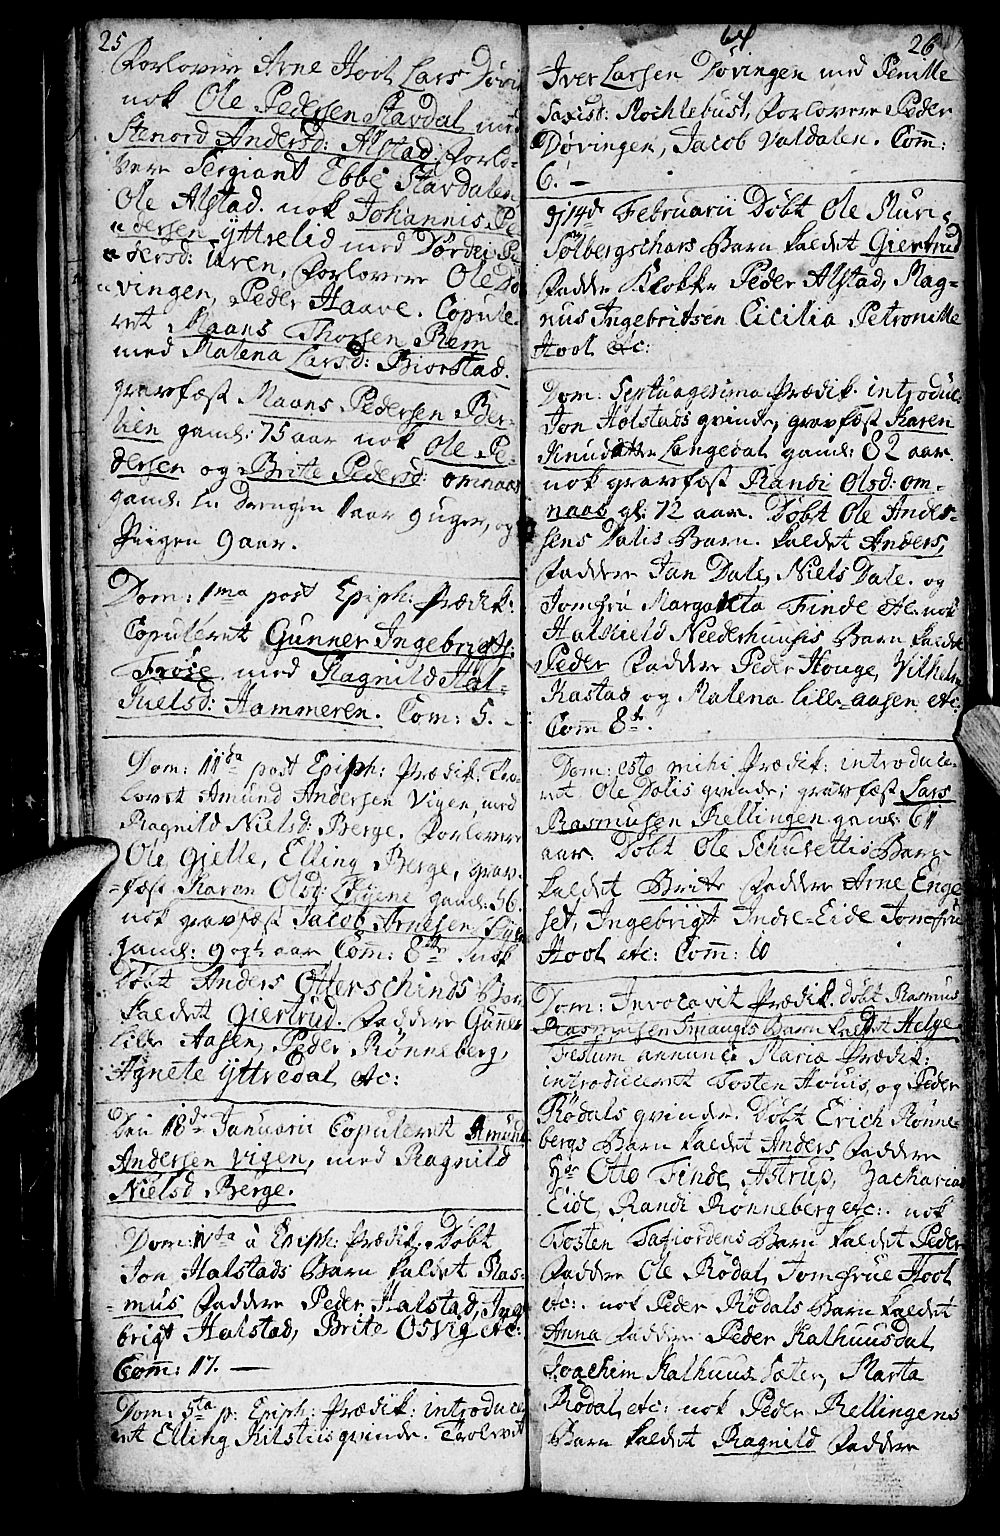 25
Forlovere Arne Hool Lars Døvin
nok Ole Pedersen Stavdal med
Stenord Andersd: Alstad, Forlo-
vere Sergiant Ebbe Stavdalen
Ole Alstad. nok Johannis Pe
dersen yttrelid med Dordei Pe
dersd: Uren, Forlovere Ole Dø
vingen, Peder Haave. Copule
ret Maans Thorsen Rem
med Malena Larsd: Biorstad.
gravfæst Maans Pedersen Ber-
lien gaml: 75 aar nok Ole Pe-
dersen og Brite Pedersd: omnaas
gaml: en Drengen 1 aar 9 uger, og
Piigen 9 aar.
Dom: 1ma post Epiph: Prædik:
Copuleret Gunner Ingebrigts:
Frøse med Ragnild Hal-
kuelsd: Hammeren. Com: 5.
Dom: 11da post Epiph: Prædik: Tro-
lovet Amund Andersen Vigen, med
Ragnild Nielsd: Berge. Forlovere
Ole Gjelle, Elling Berge, grav-
fæst Karen Olsd: gaml: 56.
nok gravfæst Jacob Arnesen
gaml: 9 og aar Com: 8te nok
Døbt Anders Otterschinds Barn
kaldet Giertrud. Faddere Gunner
lille Aasen, Peder Rønneberg,
Agnete yttredal etc:
Den 18de Januarii Copuleret Amund
Andersen Vigen, med Ragnild
Nielsd Berge.
Dom: IVta à Epiph: Prædik. Døbt
Jon Halstads Barn kaldet Ras-
mus Faddere Peder Halstad, Inge
brigt Halstad, Brite Osvig etc:
Com: 17.
Dom: 5ta p: Epiph: Prædik: introduce
ret Elling Kilstiis qvinde. Trolovet
64
26
Iver Larsen Døvingen med Pernille
Saxisd: Klochlebust, Forlovere Peder
Døvingen, Jacob Valdalen. Com:
6.
d/14de Februarii Døbt Ole Muri
Sølbergschars Barn kaldet Giertrud
Fadder Klokker Peder Alstad, Mag-
nus Ingebritsen Cicilia Petronille
Hool etc:
Dom: Septuagesima Prædik. introduc
Jon Holstads qvinde, gravfæst Karen
Knudsdatter Langedal gaml: 82 aar.
nok gravfæst Randi Olsd: om-
naas gl: 72 aar. Døbt Ole Ander-
sens Dalis Barn. kaldet Anders,
Faddere Jan Dale, Niels Dale. og
Jomfru Margareta Finde etc. nok
Halkield Nederhuusis Barn kaldet
Peder Faddere Peder Houge, Vilhelm
Kastas og Malena lille-aasen etc.
Com 8te.
Dom: esto mihi Prædik: introduce-
ret Ole Dalis qvinde; gravfæst Lars
Rasmusen Rellingen gaml: 61
aar. Døbt Ole Schusettis Barn
kaldet Brite Faddere Arne Enge
set, Ingebrigt Indre-Eide Jomfrue
Hool etc: Com: 10
Dom: Invocavit Prædik. døbt Rasmus
Rasmusen Smaugis Barn kaldet Helge
Festum annunc: Mariæ Prædik:
introduceret Tosten Houis, og Peder
Rødals qvinde. Døbt Erich Rønne
bergs Barn kaldet Anders Faddere
Hr Otto Finde, Astrup, Zacharias
Eide, Randi Rønneberg etc:. nok
Tosten Tafiordens Barn kaldet Peder
Faddere Ole Rødal, Jomfrue Hool
etc:. nok Peder Rødals Barn kaldet
Anna Faddere Peder Kalhuusdal,
Joachim Kalhuussæter, Marta
Rødal, etc: nok Peder Rellingens
Barn kaldet Ragnild Faddere